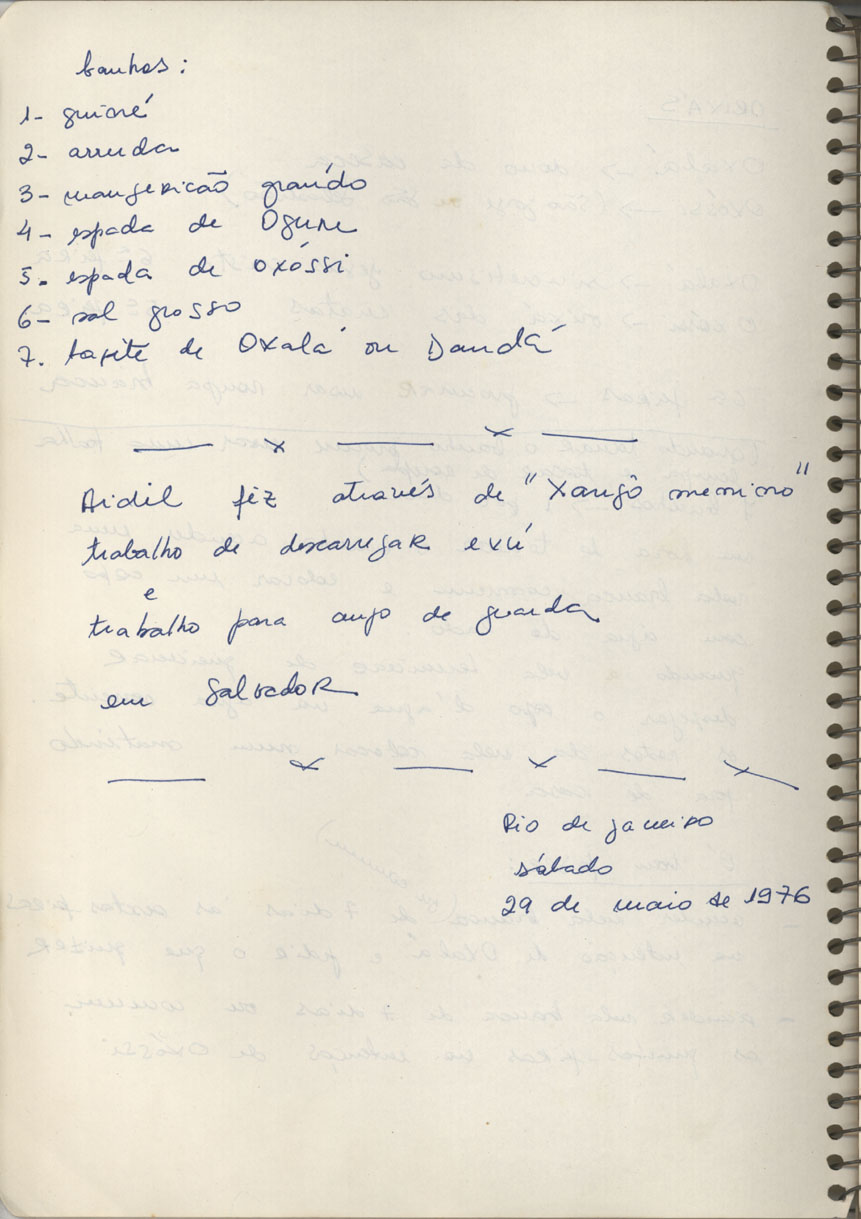 banhos:
1- guiné
2- arruda
3- mangericão graúdo
4- espada de Ogum
5- espada de oxóssi
6- sal grosso
7. tapete de Oxalá ou Dandá
Aidil fez através de "Xangô menino"
trabalho de descarregar exú
e
trabalho para anjo de guarda
em Salvador
Rio de janeiro
sábado
29 de maio de 1976